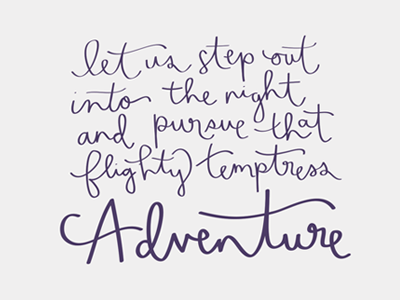 let us step out
into the night
and pursue that
flighty temptress
Adventure